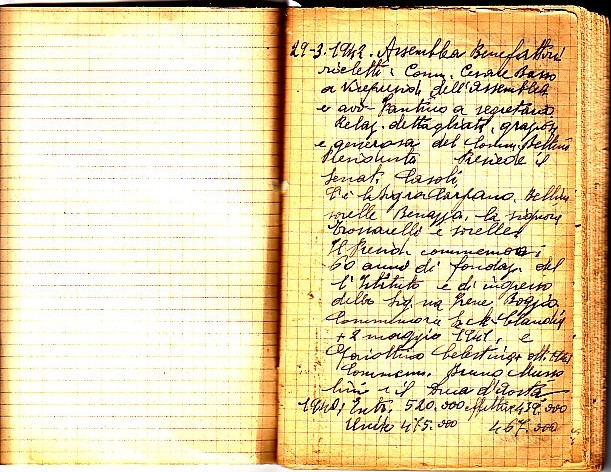 29-3.1942. Assemblea Benefattori
rieletti: Comm. Cesare Basso
a Vicepresid. dell'Assemblea
e avv. Fantino a segretario
Relaz. dettagliata, graziosa
e generosa del Comm. Bellini
Presiede il
Senat. Casoli.
C'è la Sig.ra Carpano. Bellini
sorelle Benazzo, la signora
Trossarelli e sorelle
Il Presid. commemora i
60 anni di fondaz. del
l'Istituto e di ingresso
della Sig.na Irene Boggio
Commemora Claudio
+ 2 maggio 1941, e
Celestina + ott. 1941
Commem. Bruno Musso
lini e il Duca d'Aosta
1940, Entr. 520.000 effettive 439.000
Uscite 475.000 467.000